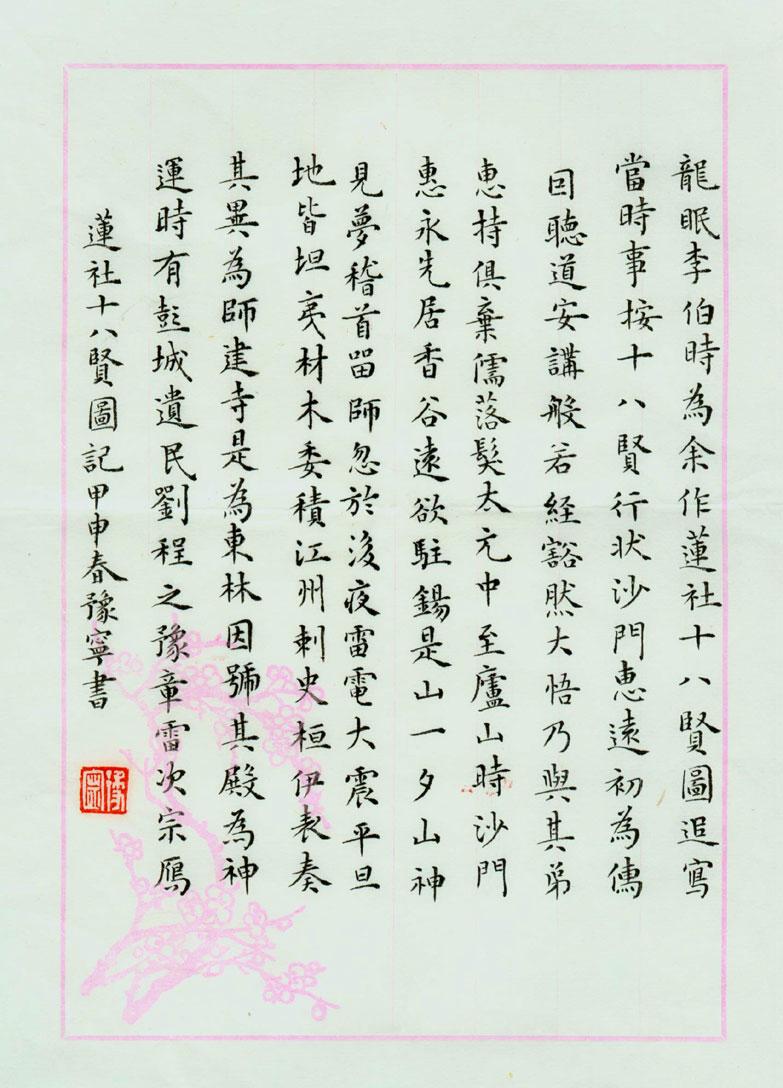 龍眠李伯時為余作蓮社十八賢圖追寫
當時事按十八賢行狀沙門惠遠初為儒
因聽道安講般若經豁然大悟乃與其弟
惠持俱棄儒落髮太元中至廬山時沙門
惠永先居香谷遠欲駐錫是山一夕山神
見夢稽首留師忽於後夜雷電大震平旦
地皆坦夷材木委積江州刺史桓伊表奏
其異為師建寺是為東林因號其殿為神
運時有彭城遺民劉程之豫章雷次宗鴈
蓮社十八賢圖記甲申春豫寧書
豫寧